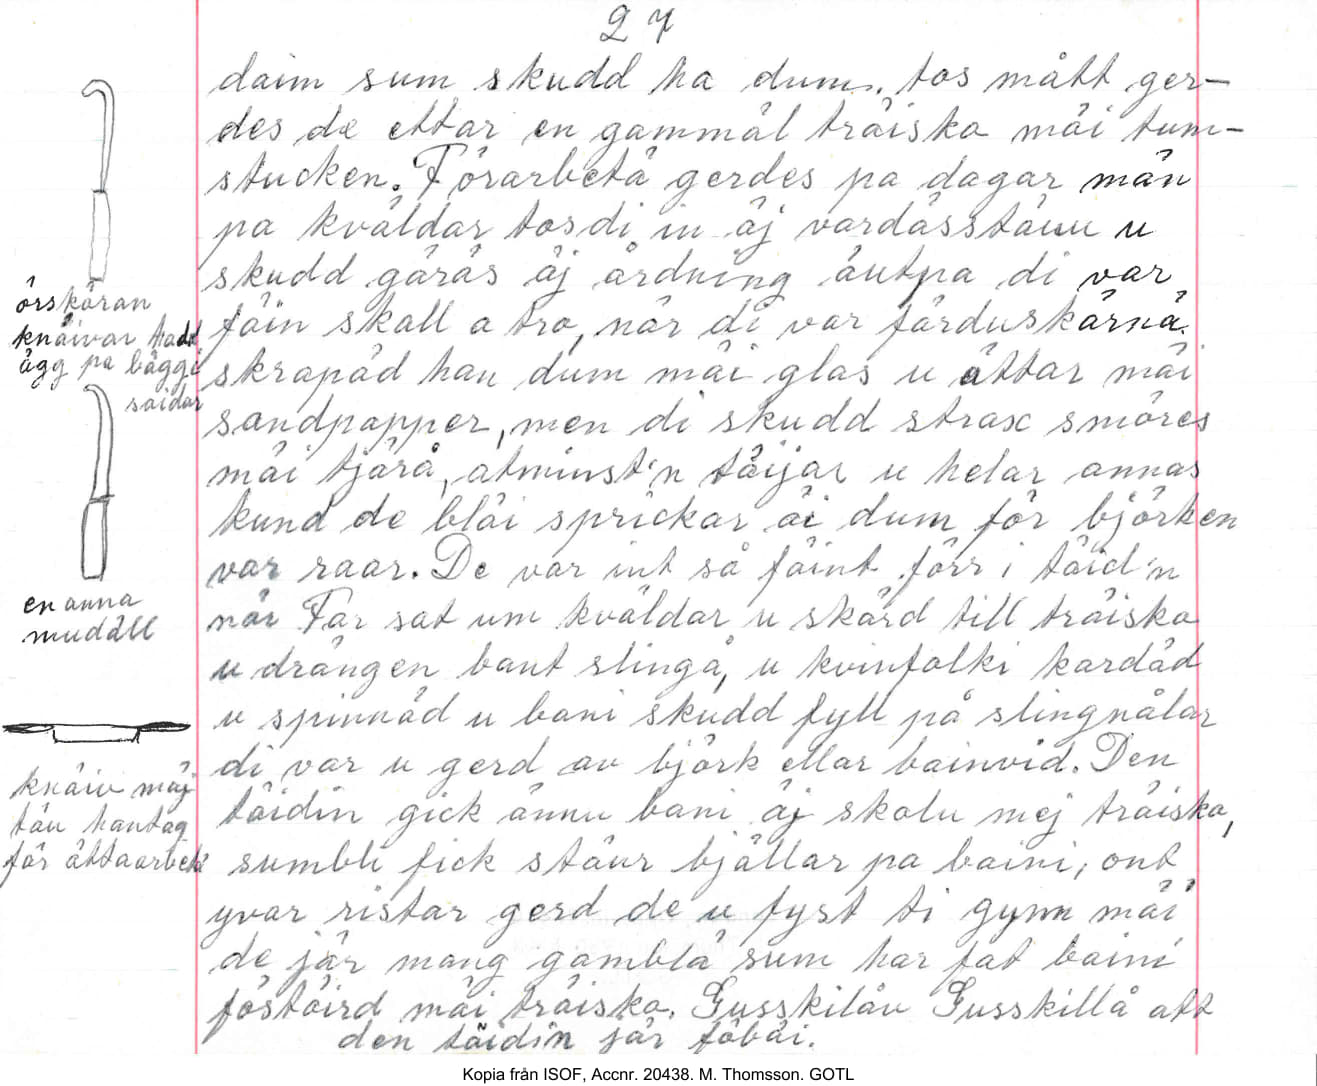 27
daim sum skudd ha dum. tos mått ger-
des de ettar en gammål träisko mäi tum-
stucken. Förarbetä gerdes pa dagar män
pa kväldar tosdi in äj vardässtäuu u
skudd gäräs äj årdning äutpa di var
fäin skall a tro, när di var färduskärnä.
skrapäd han dum mäi glas u ättar mäi
sandpapper, men di skudd strax smöres
mäi tjärå, atminst'n täijar u helar annas
kund de bläi sprickar äi dum för björken
var raar. De var int så fäint förr i täid'n
när Far sat um kväldar u skärd till träisko
u drängen bant slingå, u kvinfolki kardäd
u spinnäd u bani skudd fyll på slingnålar
di var u gerd av björk ellar bainvid. Den
täidin gick ännu bani äj skolu mej träisko,
sumbli fick stäur bjällar pa baini, ont
yvar ristar gerd de u fyst ti gynn mäi
de jär mang gamblä sum har fat baini
föstäird mäi träisko. Gusskilåv Gusskillå att
den täidin jär föbäi.
örskäran
knäivar hadd
ägg pa bäggi
saidar
en anna
mudäll
knäiv mäj
täu hantag
för ättaarbetä
Kopia från ISOF, Accnr. 20438. M. Thomsson. GOTL